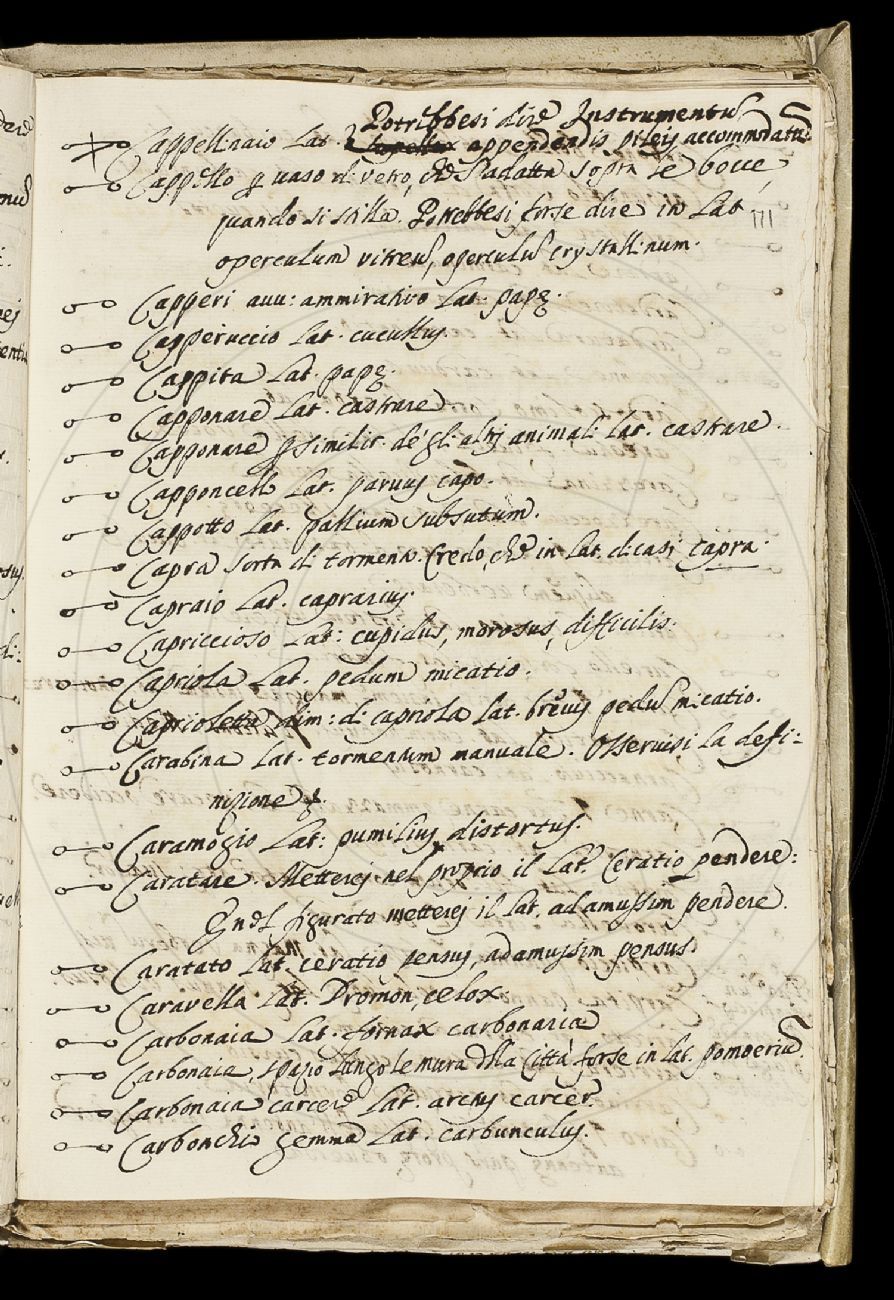 Potrebbesi dire Instrumentũ
Cappellinaio Lat. appendendis pileis accommodatũ
Cappello p̱ uaso di vetro, che s'adatta sopra le bocce,
quando si stilla. Potrebbesi forse dire in Lat.
111
operculum vitreũ, operculũ crystallinum.
Capperi auu: ammirativo Lat. papę.
Capperuccio Lat. cucullus.
Cappita Lat. papę.
Capponare Lat. castrare
Capponare p̱ similit. de gli altri animali lat. castrare.
Capponcello Lat. paruus capo.
Cappotto Lat. pallium subsutum.
Capra sorta di tormento. Credo, che in lat. dicasi capra.
Capraio Lat. caprarius.
Capriccioso Lat: cupidus, morosus, difficilis.
Capriola Lat. pedum micatio.
Caprioletta dim: di capriola Lat. breuis pedũ micatio.
Carabina Lat. tormentum manuale. Osseruisi la defi-
nizione
Caramogio Lat: pumilius distortus.
Caratare. Metterei nel proprio il Lat. Ceratio pendere:
E nel figurato metterei il lat. adamussim pendere.
Caratato Lat. ceratio pensus, adamussim pensus.
Caravella Lat. Dromon, celox.
Carbonaia Lat. fornax carbonaria
Carbonaia, spazio lungo le mura della Città forse in lat. pomoeriũ.
Carbonaia carcere Lat. arctus carcer.
Carbonchio gemma Lat. carbunculus.